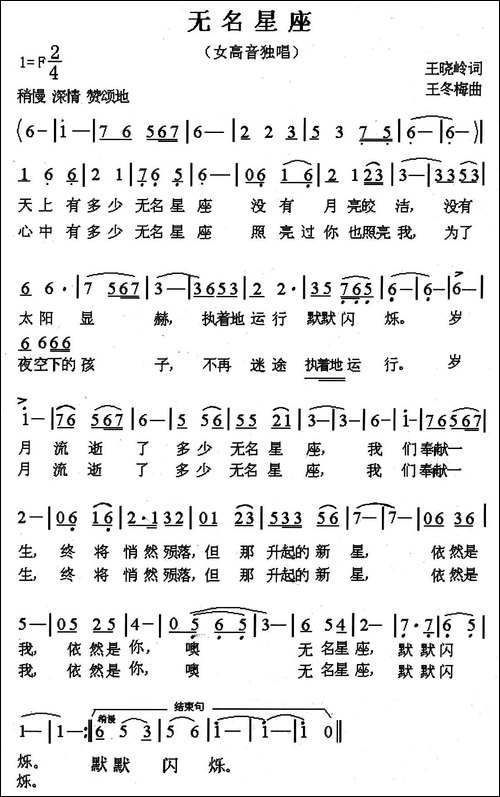 无名星座
（女高音独唱）
1=F 2/4
王晓岭词
稍慢 深情 赞颂地
王冬梅曲
(6-|i-|76 567|6-|223|375|6-|6-)|
1 6 6|21|7 6 5|6-|06 16|2 123|3-|3353|
天上有多少无名星座 没有月亮皎洁，没有
心中有多少无名星座 照亮过你也照亮我，为了
6 6·|7 567|3-|3653|2 2·|35 765|6-|6-|
太阳显赫，执着地运行默默闪烁。岁
6 666
夜空下的孩子，不再迷途执着地运行。岁
i-|76 567|6-|5 56|55 21|3-|6-|i-|76567|
月流逝了多少无名星座，我们奉献一
月流逝了多少无名星座，我们奉献一
2-|06 16|2·132|01 23|533 56|7-|7-|06 36|
生，终将悄然陨落，但那升起的新星，依然是
生，终将悄然陨落，但那升起的新星，依然是
5-|05 25|4-|05 65|3-|6 54|2-|7·7|6 5|
我，依然是你，噢 无名星座，默默闪
我，依然是你，噢 无名星座，默默闪
结束句
稍慢
1-|1-:|6 5 3|5 6|i-|i-|i 0||
烁。默默闪烁。
烁。